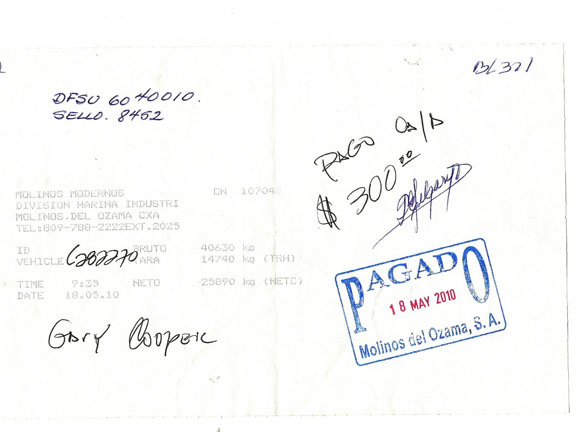 BL 321
DFSU 60 40010.
SELLO. 8452
PAGO
$ 300.00
MOLINOS MODERNOS CN 107046
DIVISION HARINA INDUSTRI
MOLINOS.DEL OZAMA CXA
TEL:809-788-2222EXT.2025
ID BRUTO 40630 kg
VEHICLE L282270 ARA 14740 kg (TRM)
TIME 9:35 NETO 25890 kg (NETC)
DATE 18.05.10
Gary Cooper
PAGADO
18 MAY 2010
Molinos del Ozama, S.A.